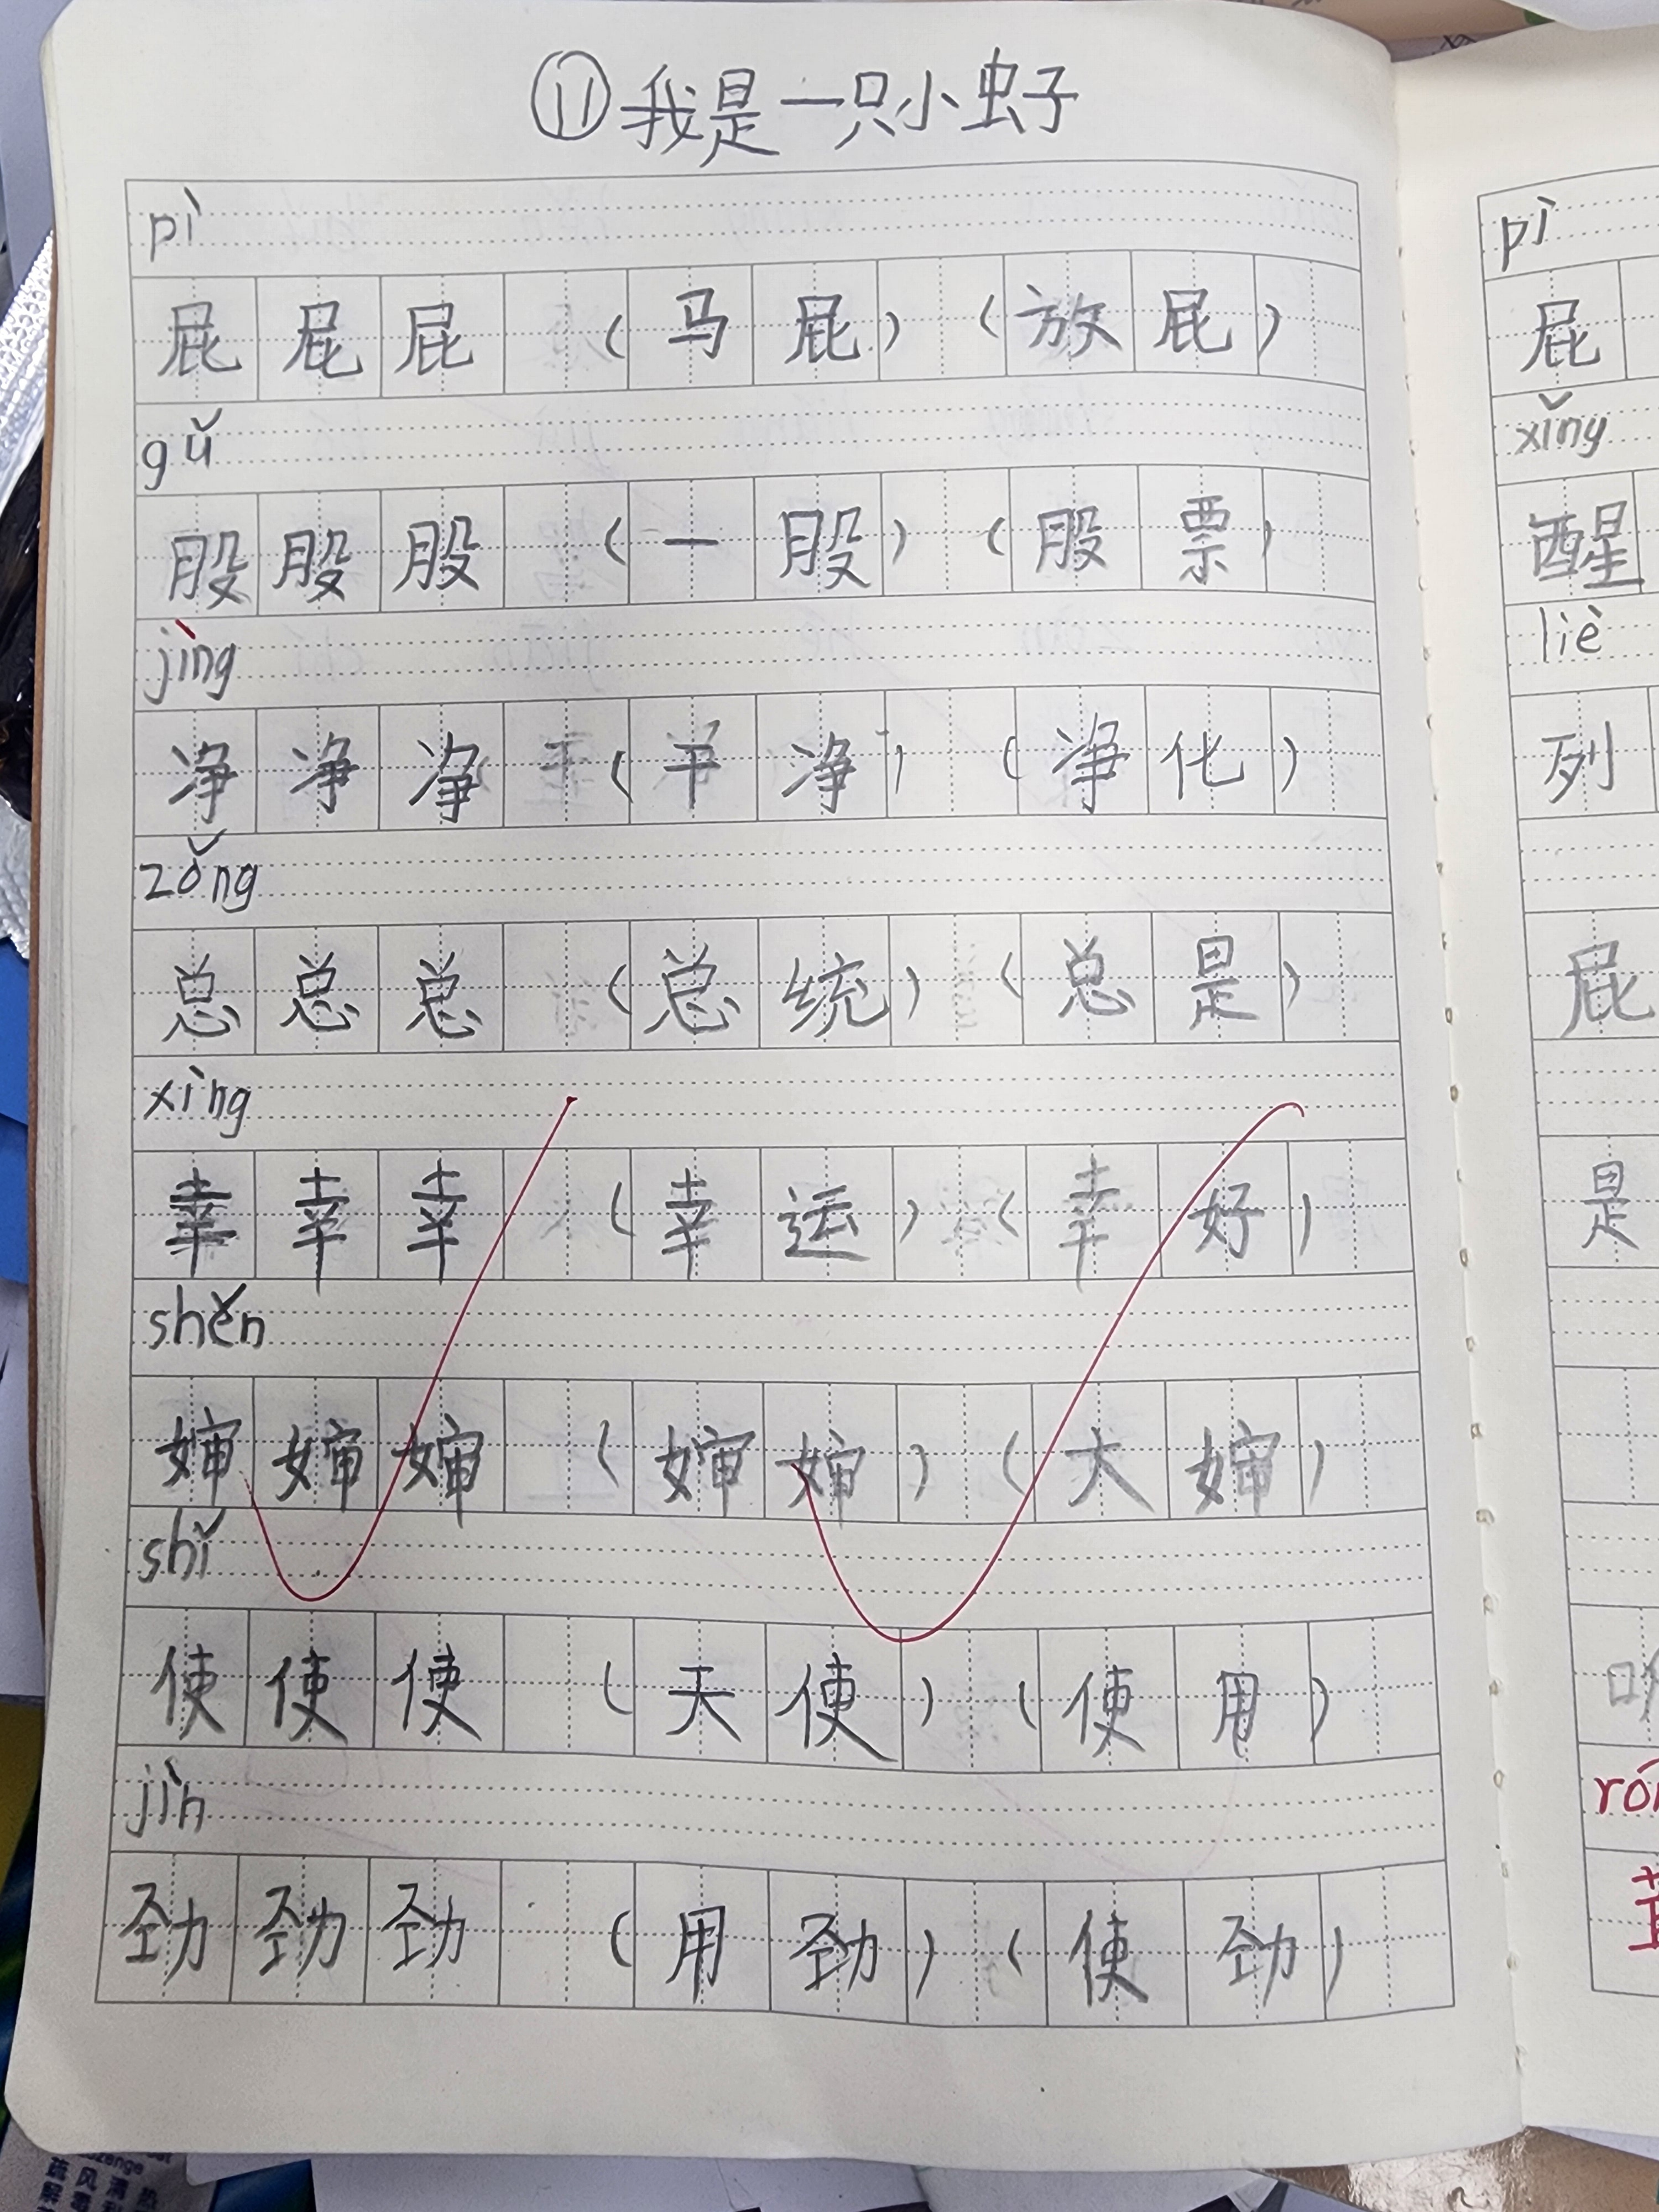 ⑪我是一只小虫子
pì
屁屁屁(马屁)(放屁)
gǔ
股股股(一股)(股票)
jìng
净净净(干净)(净化)
zǒng
总总总(总统)(总是)
xìng
幸幸幸(幸运)(幸好)
shěn
婶婶婶(婶婶)(大婶)
shǐ
使使使(天使)(使用)
jìn
劲劲劲(用劲)(使劲)
pì
屁
xǐng
醒
liè
列
屁
是